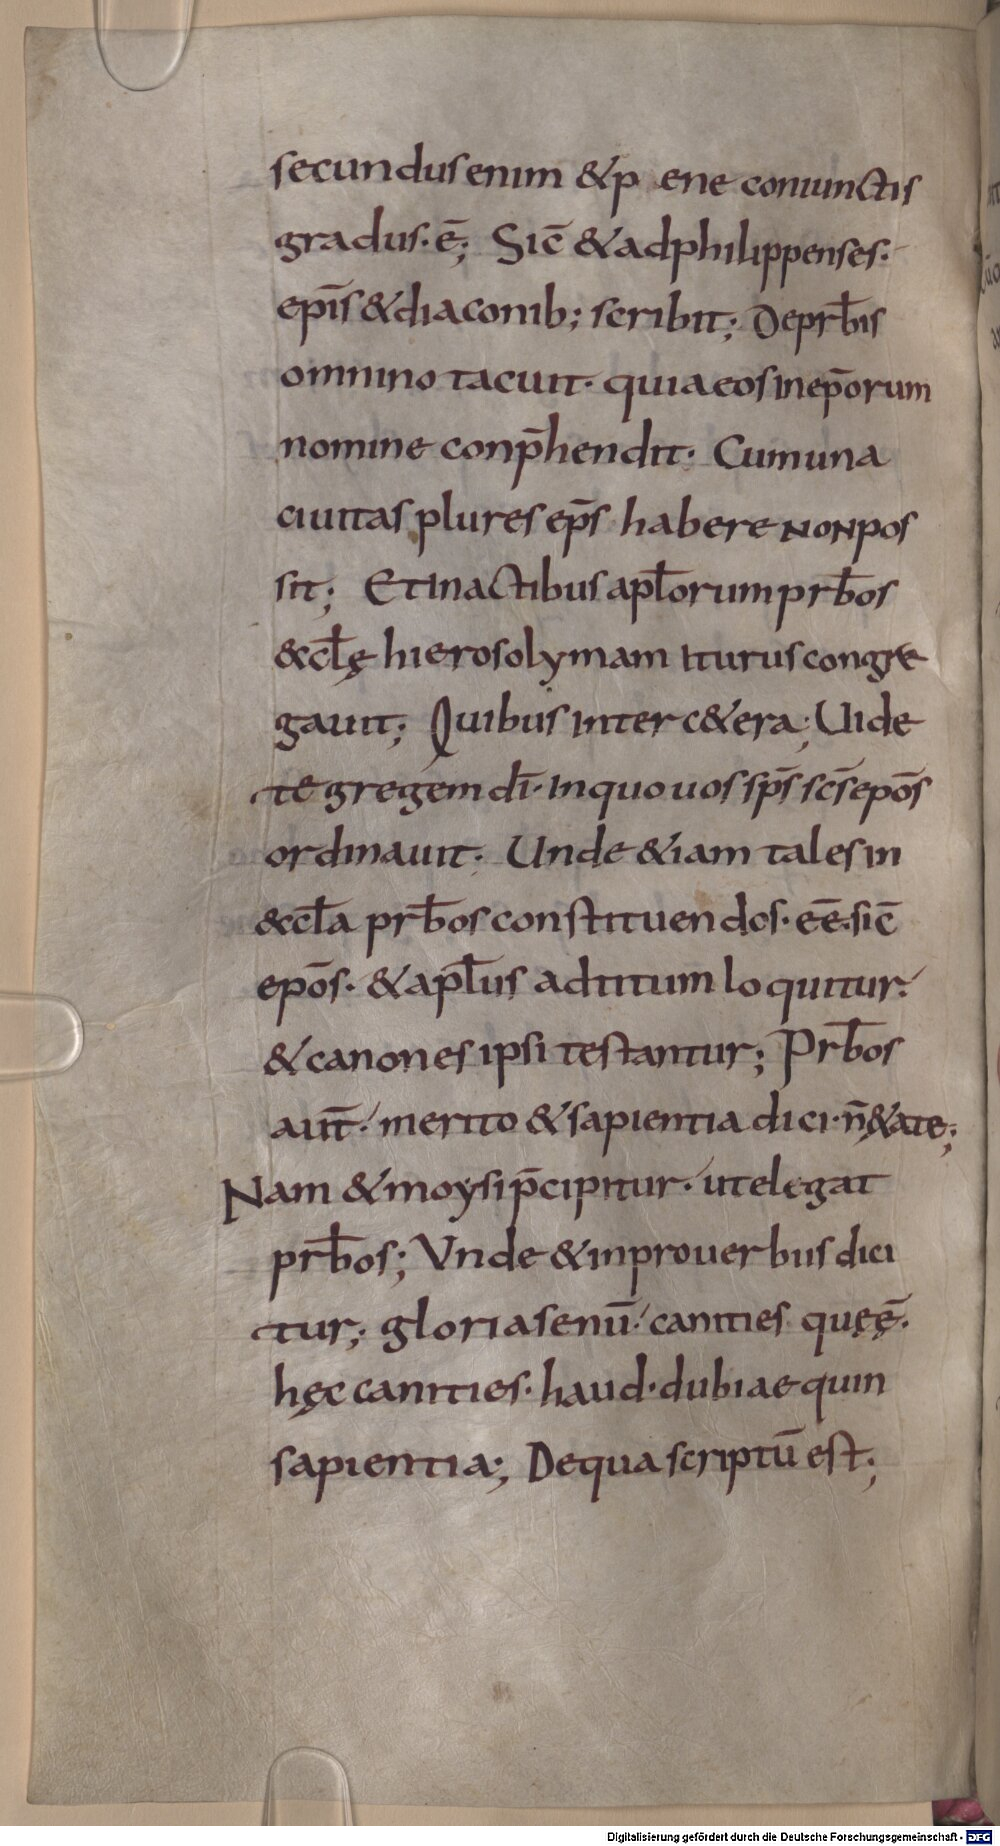 secundus enim & p ene coniunctis
gradus· ē; Sic̄ & ad philippenses·
ep̄is & diaconib; scribit; De prb̄is
omnino tacuit· quia eos in ep̄orum
nomine conp̄hendit· Cum una
ciuitas plures ep̄s habere non pos
sit; Et in actibus apl̄orum prb̄os
&cl̄ę hierosolymam iturus congre
gauit; Quibus inter c&era; Uide
te gregem dī· in quo uos sp̄s sc̄s epōs
ordinauit· Unde & iam tales in
&cl̄a prb̄os constituendos· eē· sic̄
epōs· & apl̄us ad titum loquitur·
& canones ipsi testantur; Prb̄os
aut̄· merito & sapientia dici· n̄ &ate;
Nam & moysi p̄cipitur· ut elegat
prb̄os; Vnde & in prouerbiis dici
tur; gloria senū· canities quę ę̄·
hęc canities· haud· dubiae quin
sapientia; De qua scriptū est;
Digitalisierung gefördert durch die Deutsche Forschungsgemeinschaft - DFG